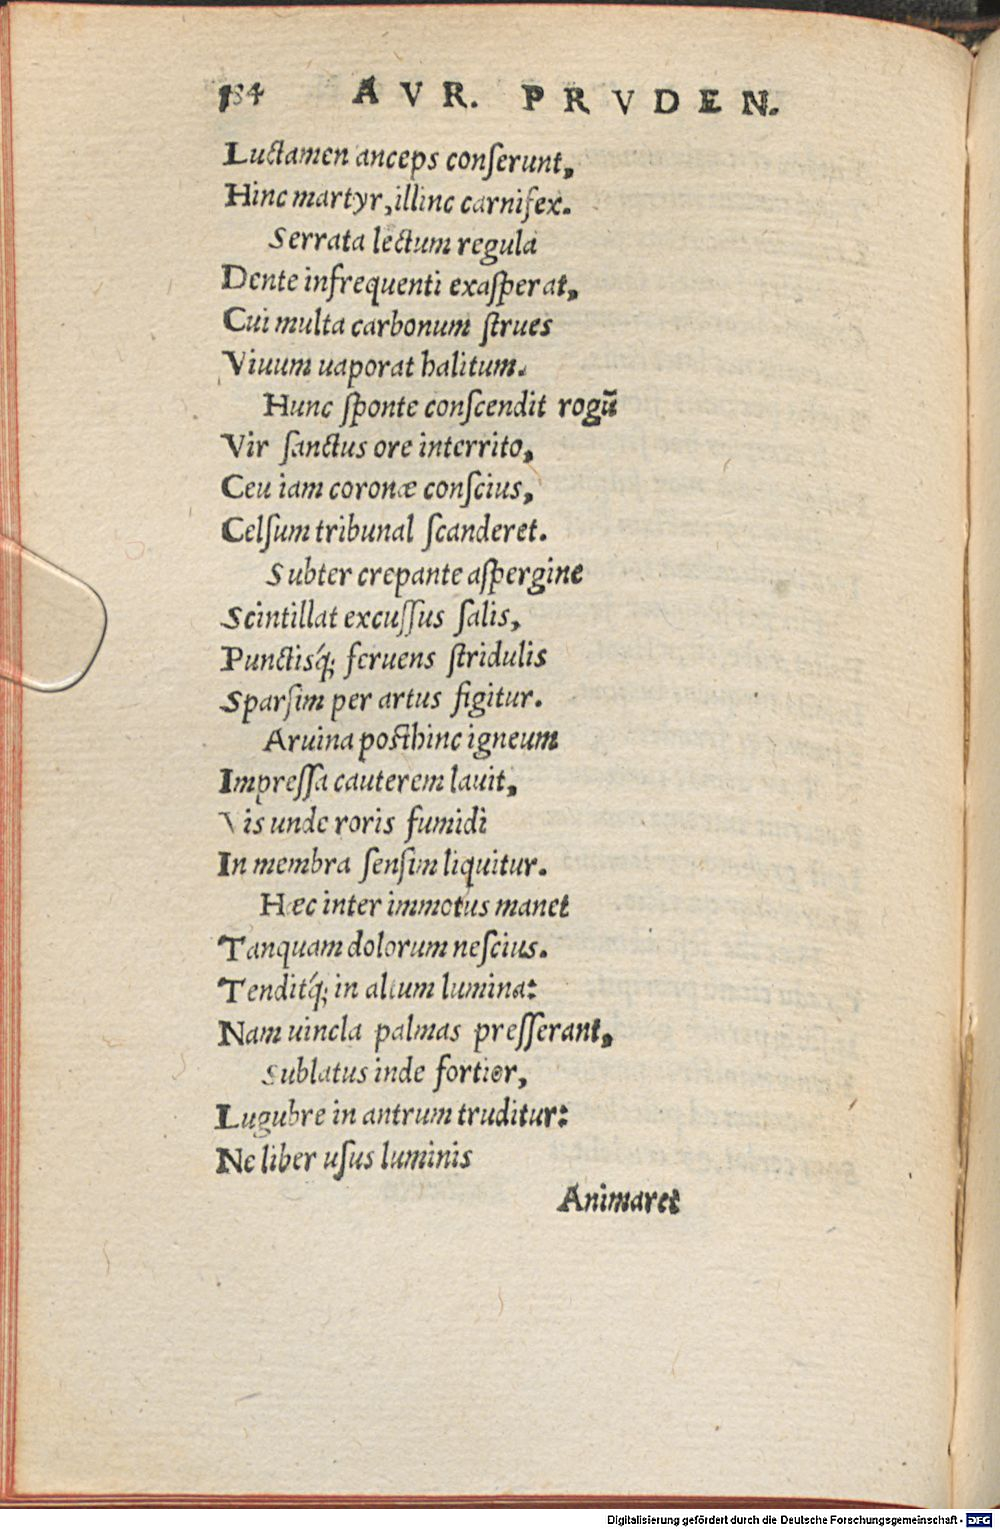 184 AVR. PRVDEN.
Luctamen anceps conſerunt,
Hinc martyr, illinc carnifex.
Serrata lectum regula
Dente infrequenti exaſperat,
Cui multa carbonum ſtrues
Viuum uaporat halitum.
Hunc ſponte conſcendit rogũ
Vir ſanctus ore interrito,
Ceu iam coronæ conſcius,
Celſum tribunal ſcanderet.
Subter crepante aſpergine
Scintillat excuſſus ſalis,
Punctisq́; feruens ſtridulis
Sparſim per artus figitur.
Aruina poſthinc igneum
Impreſſa cauterem lauit,
Vis unde roris fumidi
In membra ſenſim liquitur.
Hæc inter immotus manet
Tanquam dolorum neſcius.
Tenditq́; in altum lumina:
Nam uincla palmas preſſerant,
Sublatus inde fortior,
Lugubre in antrum truditur:
Ne liber uſus luminis
Animaret
Digitalisierung gefördert durch die Deutsche Forschungsgemeinschaft - DFG